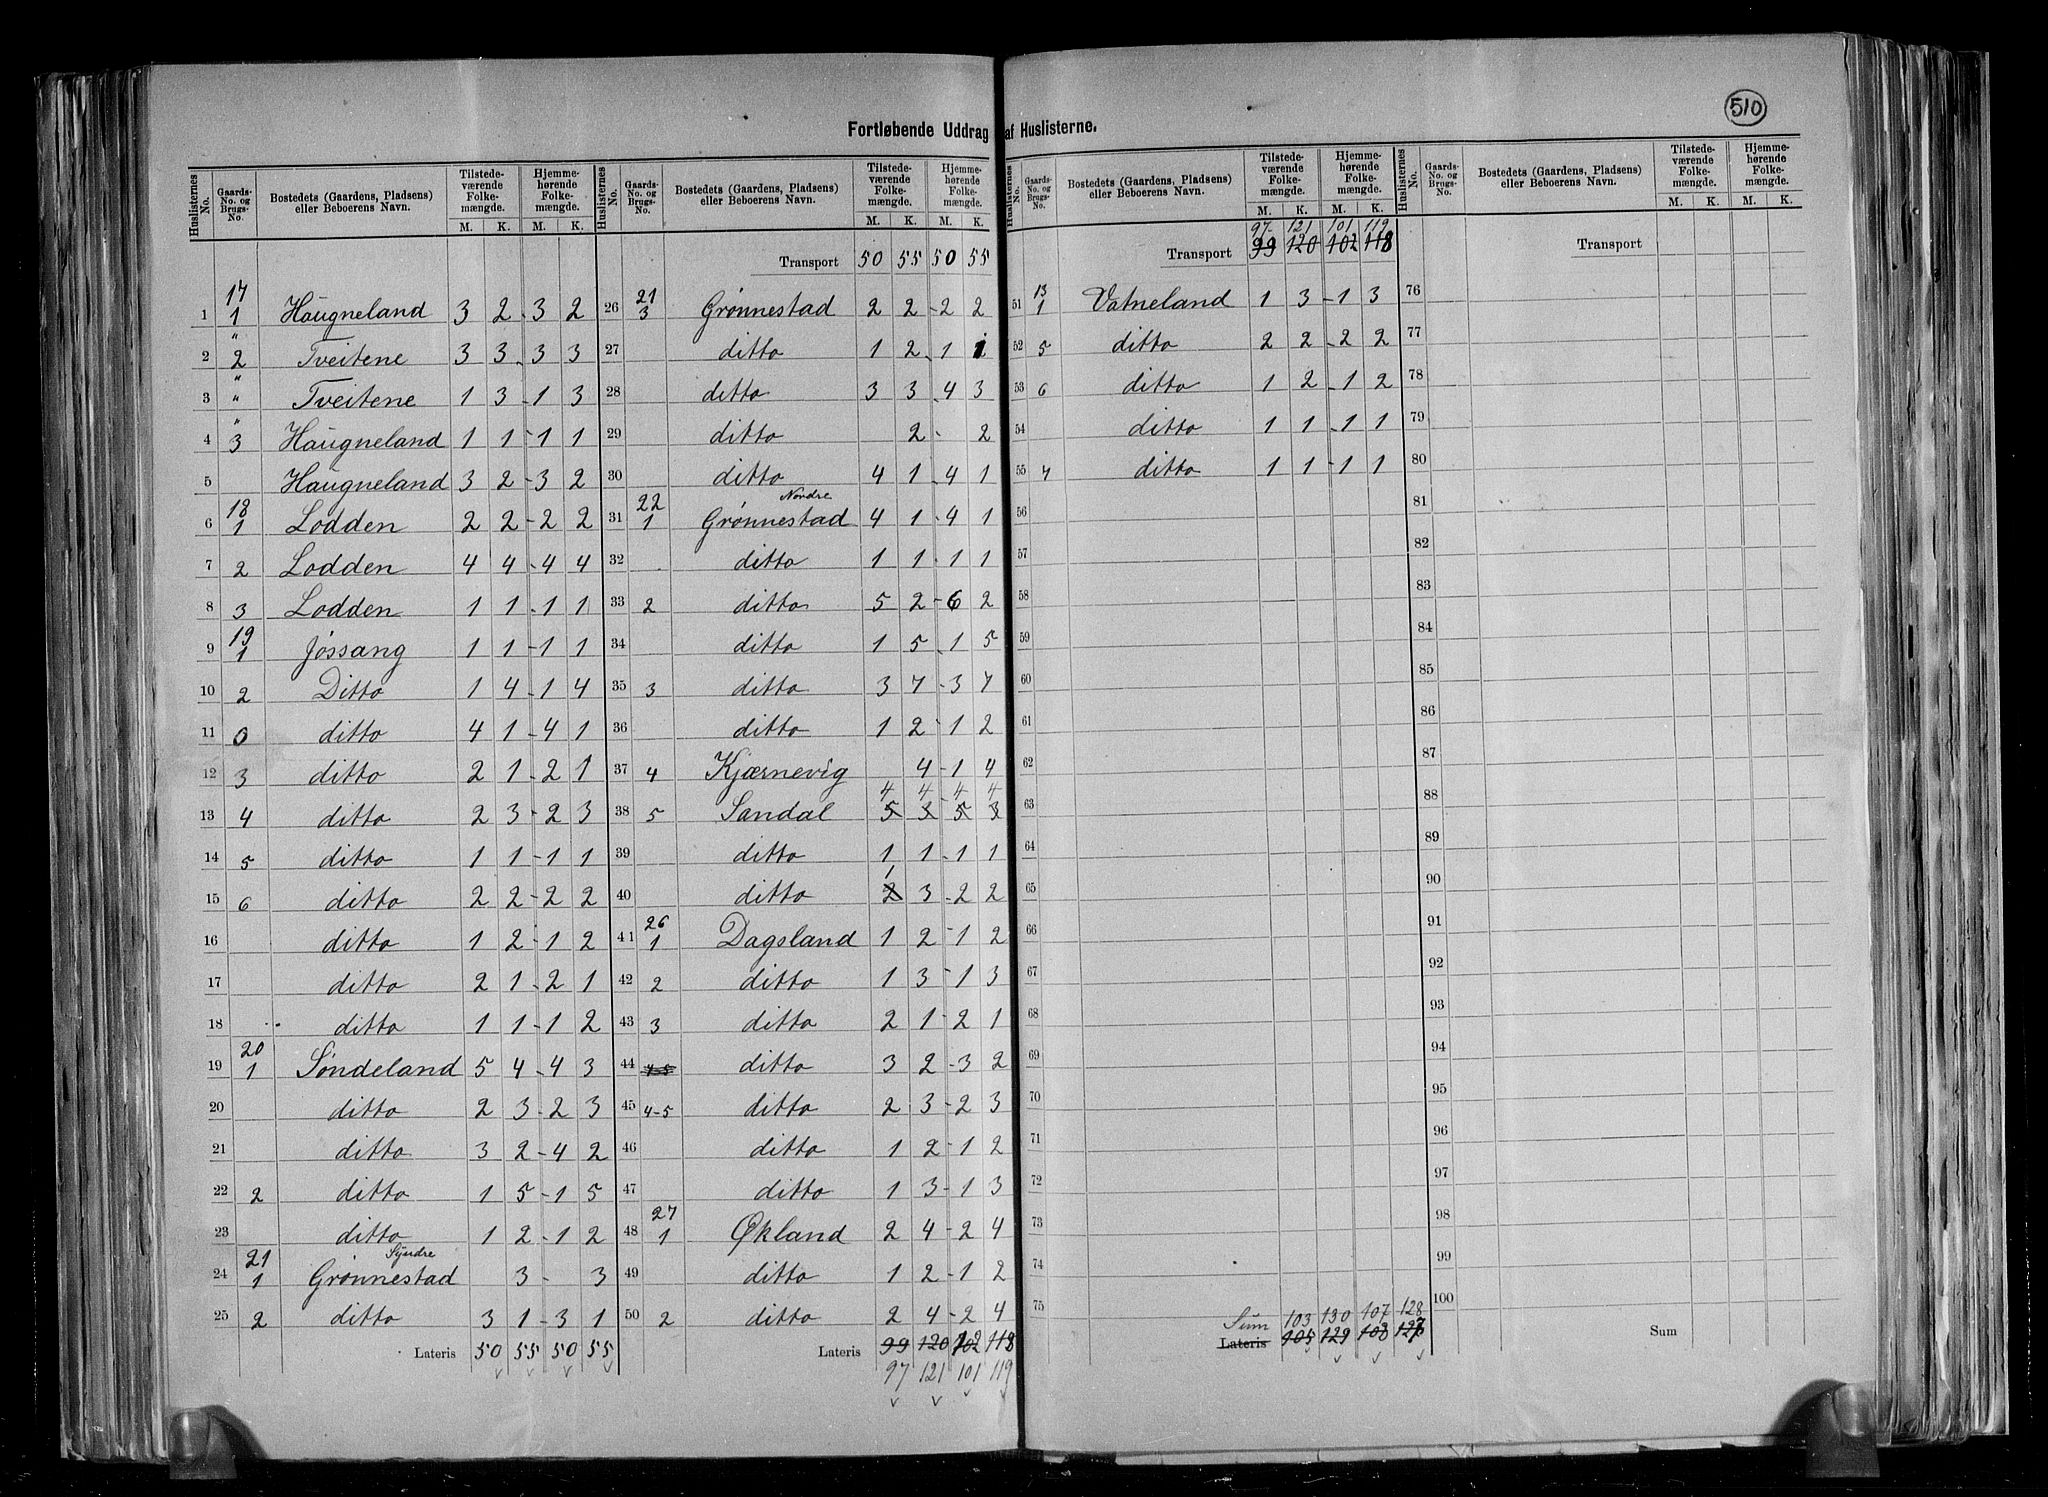 510
Fortløbende Uddrag af Huslisterne.
Huslisternes No. Gaards-No. og Brugs-No. Bostedets (Gaardens, Pladsens) eller Beboerens Navn. Tilstedeværende Folkemængde. M. K. Hjemmehørende Folkemængde. M. K.
1 17 1 Haugneland 3 2 - 3 2
2 " 2 Tveitene 3 3 - 3 3
3 " " Tveitene 1 3 - 1 3
4 " 3 Haugneland 1 1 - 1 1
5 Haugneland 3 2 - 3 2
6 18 1 Lodden 2 2 - 2 2
7 2 Lodden 4 4 - 4 4
8 3 Lodden 1 1 - 1 1
9 19 1 Jøssang 1 1 - 1 1
10 2 Ditto 1 4 - 1 4
11 0 ditto 4 1 - 4 1
12 3 ditto 2 1 - 2 1
13 4 ditto 2 3 - 2 3
14 5 ditto 1 1 - 1 1
15 6 ditto 2 2 - 2 2
16 ditto 1 2 - 1 2
17 ditto 2 1 - 2 1
18 ditto 1 1 - 1 2
19 20 1 Søndeland 5 4 - 4 3
20 ditto 2 3 - 2 3
21 ditto 3 2 - 4 2
22 2 ditto 1 5 - 1 5
23 ditto 1 2 - 1 2
24 21 1 Grønnestad Syndre 3 - 3
25 2 ditto 3 1 - 3 1
Lateris 50 55 50 55
Huslisternes No. Gaards-No. og Brugs-No. Bostedets (Gaardens, Pladsens) eller Beboerens Navn. Tilstedeværende Folkemængde. M. K. Hjemmehørende Folkemængde. M. K.
Transport 50 55 50 55
26 21 3 Grønnestad 2 2 - 2 2
27 ditto 1 2 - 1
28 ditto 3 3 - 4 3
29 ditto 2 - 2
30 ditto 4 1 - 4 1
31 22 1 Nordre Grønnestad 4 1 - 4 1
32 ditto 1 1 - 1 1
33 2 ditto 5 2 - 6 2
34 ditto 1 5 - 1 5
35 3 ditto 3 7 - 3 7
36 ditto 1 2 - 1 2
37 4 Kjærnevig 4 - 1 4
4 4 - 4 4
38 5 Sandal 5 3 5 3
39 ditto 1 1 - 1 1
1
40 ditto 2 3 - 2 2
41 26 1 Dagsland 1 2 - 1 2
42 2 ditto 1 3 - 1 3
43 3 ditto 2 1 - 2 1
44 4-5 ditto 3 2 - 3 2
45 4-5 ditto 2 3 - 2 3
46 ditto 1 2 - 1 2
47 ditto 1 3 - 1 3
48 27 1 Økland 2 4 - 2 4
49 ditto 1 2 - 1 2
50 2 ditto 2 4 - 2 4
Lateris 99 120 102 118
97 121 101 119
Huslisternes No. Gaards-No. og Brugs-No. Bostedets (Gaardens, Pladsens) eller Beboerens Navn. Tilstedeværende Folkemængde. M. K. Hjemmehørende Folkemængde. M. K.
97 121 101 119
Transport 99 120 102 118
51 13 1 Vatneland 1 3 - 1 3
52 5 ditto 2 2 - 2 2
53 6 ditto 1 2 - 1 2
54 ditto 1 1 - 1 1
55 4 ditto 1 1 - 1 1
56
57
58
59
60
61
62
63
64
65
66
67
68
69
70
71
72
73
74
75
Sum 103 130 107 128
Lateris 105 129 108 127
Huslisternes No. Gaards-No. og Brugs-No. Bostedets (Gaardens, Pladsens) eller Beboerens Navn. Tilstedeværende Folkemængde. M. K. Hjemmehørende Folkemængde. M. K.
Transport
76
77
78
79
80
81
82
83
84
85
86
87
88
89
90
91
92
93
94
95
96
97
98
99
100
Sum